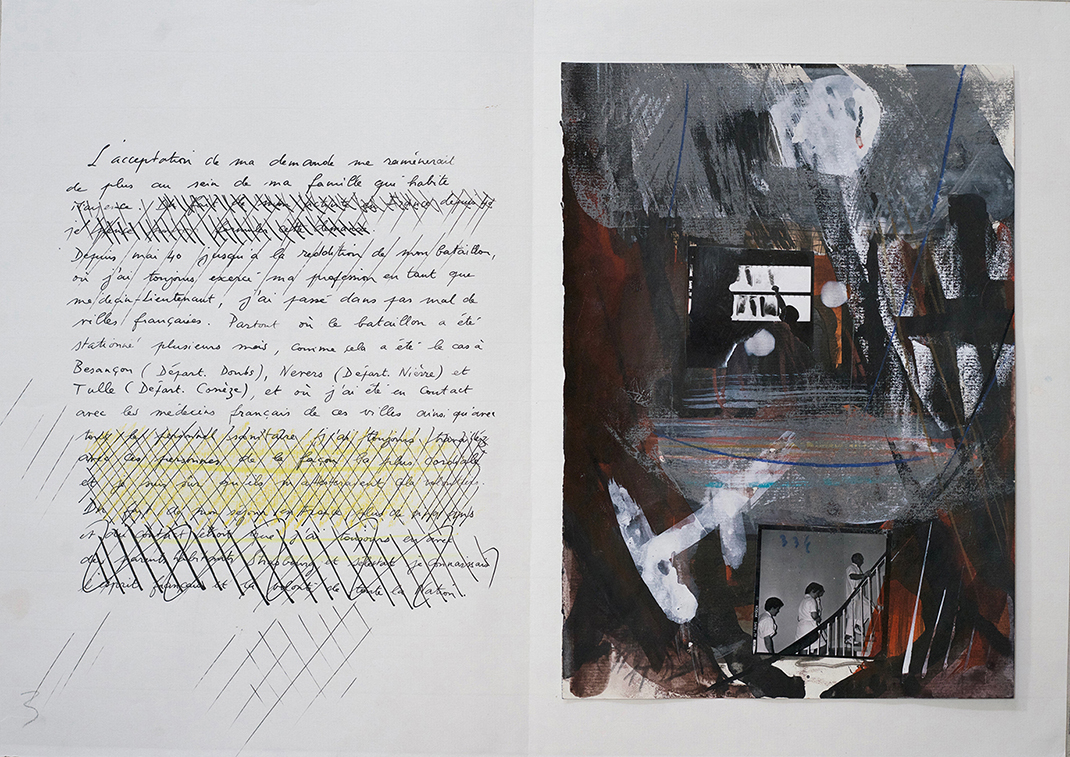 L'acceptation de ma demande me ramènerait
de plus au sein de ma famille qui habite
depuis
Depuis mai 40 jusqu'à la reddition de mon bataillon,
où j'ai toujours exercé ma profession en tant que
médecin-Lieutenant, j'ai passé dans pas mal de
villes françaises. Partout où le bataillon a été
stationné plusieurs mois, comme cela a été le cas à
Besançon (Départ. Doubs), Nevers (Départ. Nièvre) et
Tulle (Départ. Corrèze), et où j'ai été en contact
avec les médecins français de ces villes ainsi qu'avec
tout le personnel sanitaire, j'ai toujours travaillé
avec ces personnes de la façon la plus cordiale
et je suis sûr qu'ils m'attesteraient
Du fait de mon séjour en France plus de
et du contact étroit que j'ai toujours eu avec
des parents habitant Strasbourg et je connaissais
et la volonté de toute la Nation.
3